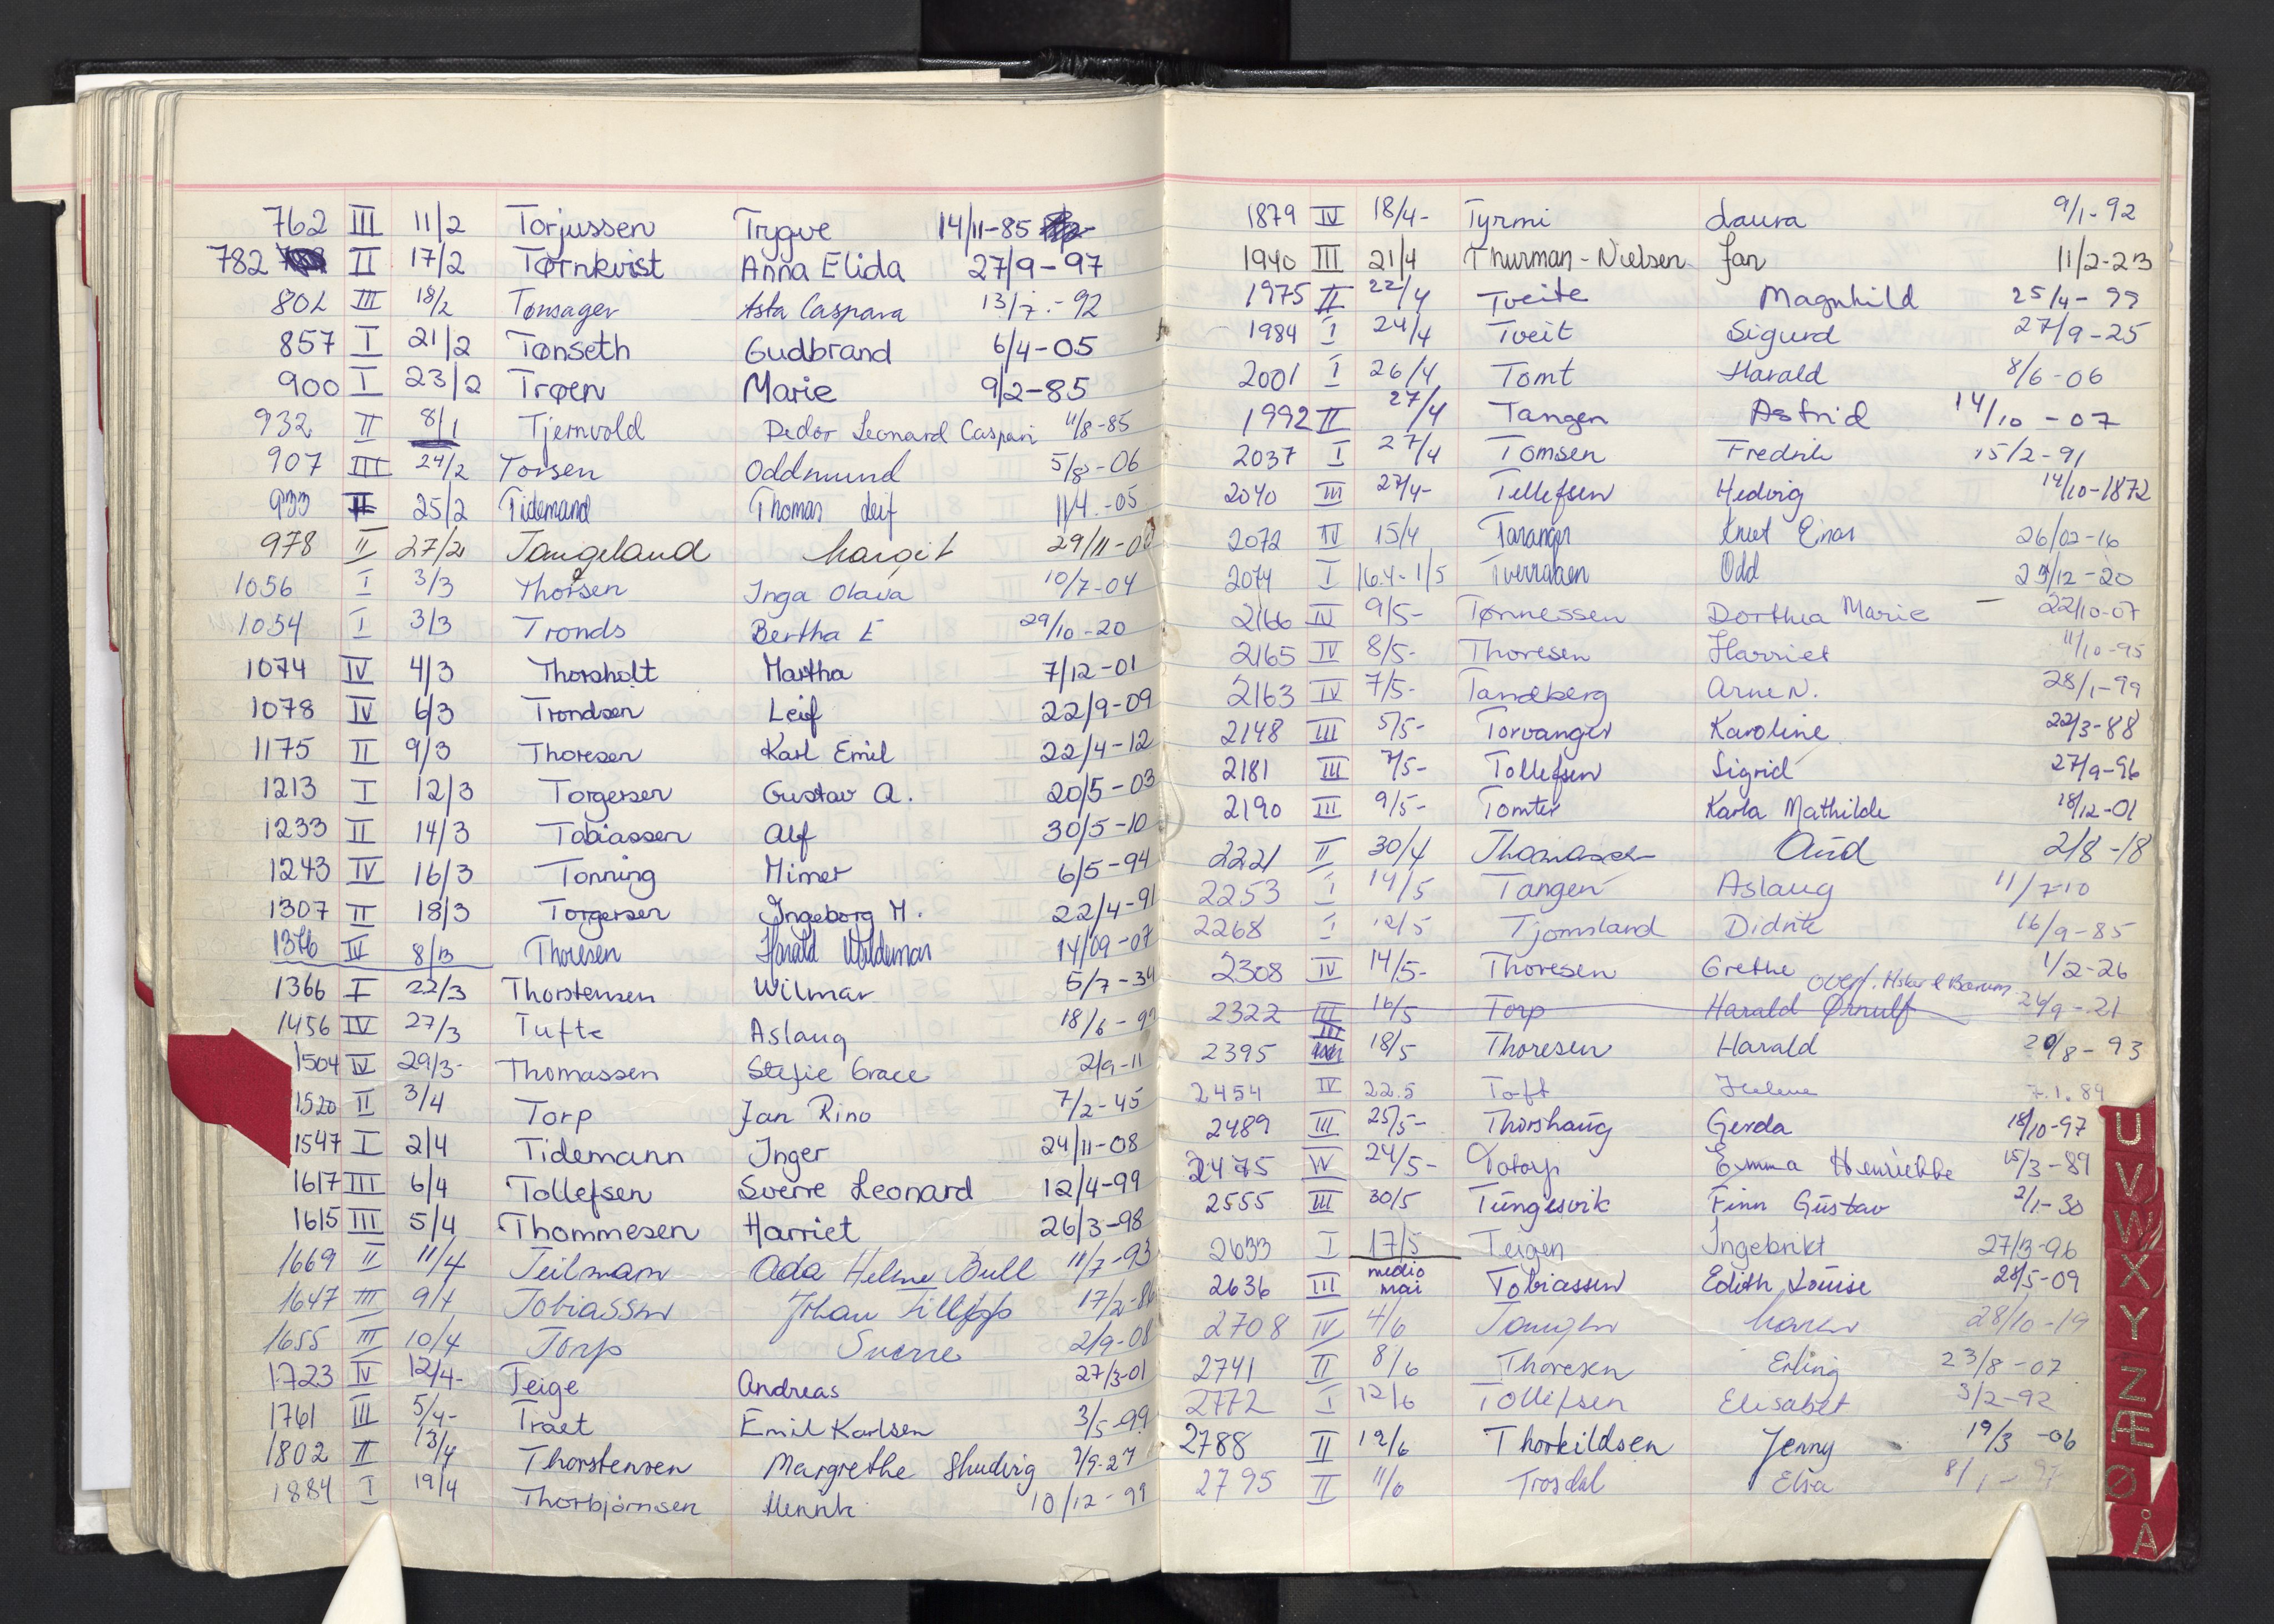 762 III 11/2 Torjussen Trygve 14/11-85
782 II 17/2 Tørnkvist Anna Elida 27/9-97
802 III 18/2 Tønsager Asta Caspara 13/7.-92
857 I 21/2 Tønseth Gudbrand 6/4-05
900 I 23/2 Trøen Marie 9/2-85
932 II 8/1 Tjernvold Peder Leonard Caspari 11/8-85
907 III 24/2 Torsen Oddmund 5/8-06
933 II 25/2 Tidemand Thomas Leif 11/4.-05
978 II 27/2 Tangeland Margit 29/11-
1056 I 3/3 Thorsen Inga Olava 10/7-04
1054 I 3/3 Tronds Bertha E 29/10-20
1074 IV 4/3 Thorsholt Martha 7/12-01
1078 IV 6/3 Trondsen Leif 22/9-09
1175 II 9/3 Thoresen Karl Emil 22/4-12
1213 I 12/3 Torgersen Gustav A. 20/5-03
1233 II 14/3 Tobiassen Alf 30/5-10
1243 IV 16/3 Tonning Mimer 6/5-94
1307 II 18/3 Torgersen Ingeborg M. 22/4-91
1376 IV 8/3 Thoresen Harald Waldemar 14/09-07
1366 I 22/3 Thorstensen Wilmar 5/7-34
1456 IV 27/3 Tufte Aslaug 18/6-
1504 IV 29/3- Thomassen Stefie Grace 2/9-11
1520 II 3/4 Torp Jan Rino 7/2-45
1547 I 2/4 Tidemann Inger 24/11-08
1617 III 6/4 Tollefsen Sverre Leonard 12/4-99
1615 III 5/4 Thommesen Harriet 26/3-98
1669 II 11/4 Teilmann Ada Helene Bull 11/7-93
1647 III 9/4 Tobiassen Johan Fillip 17/2-86
1655 III 10/4 Torp Sverre 2/9-08
1723 IV 12/4- Teige Andreas 27/3-01
1761 III 5/4- Traet Emil Karlsen 3/5-99
1802 II 13/4 Thorstensen Margrethe 7/9-27
1884 I 19/4 Thorbjørnsen Henrik 10/12-99
1879 IV 18/4- Tyrmi Laura 9/1-92
1940 III 21/4 Thurman-Nielsen Jan 11/2-23
1975 II 22/4 Tveite Magnhild 25/4-99
1984 I 24/4 Tveit Sigurd 27/9-25
2001 I 26/4 Tomt Harald 8/6-06
1992 II 27/4 Tangen Astrid 14/10-07
2037 I 27/4 Tomsen Fredrik 15/2-91
2040 III 27/4- Tellefsen Hedvig 14/10-1872
2072 IV 15/4 Taranger Knut Einar 26/02-16
2074 I 16.4-1/5 Tverraaen Odd 23/12-20
2166 IV 9/5- Tønnessen Dorthea Marie 22/10-07
2165 IV 8/5- Thoresen Harriet 11/10-95
2163 IV 7/5- Tandberg Arne N. 28/1-99
2148 III 5/5- Torvanger Karoline 22/3-88
2181 III 7/5- Tollefsen Sigrid 27/9-96
2190 III 9/5- Tomter Karla Mathilde 18/12-01
2221 II 30/4 Thomassen Aud 2/8-18
2253 I 14/5 Tangen Aslaug 11/7-10
2268 I 12/5 Tjomsland Didrik 16/9-85
2308 IV 14/5- Thoresen Grethe 1/2-26
overf. Asker & Bærum
2322 III 16/5 Torp Harald Ørnulf 24/9-21
2395 III 18/5 Thoresen Harald 20/8-93
2454 IV 22.5 Toft Helene 7.1.84
2489 III 25/5- Thorshaug Gerda 18/10-97
2475 IV 24/5- Totorp Emma Henriette 15/3-89
2555 III 30/5 Tungesvik Finn Gustav 2/1-30
2633 I 17/5 Teigen Ingebrikt 27/3-96
2636 III medio mai Tobiassen Edith Louise 28/5-09
2708 IV 4/6 Tangen Maren 28/10-19
2741 II 8/6 Thoresen Erling 23/8-07
2772 I 12/6 Tollefsen Elisabet 3/2-92
2788 II 12/6 Thorkildsen Jenny 19/3-06
2795 II 11/6 Trosdal Elsa 8/1-97
U
V
W
X
Y
Z
Æ
Ø
Å